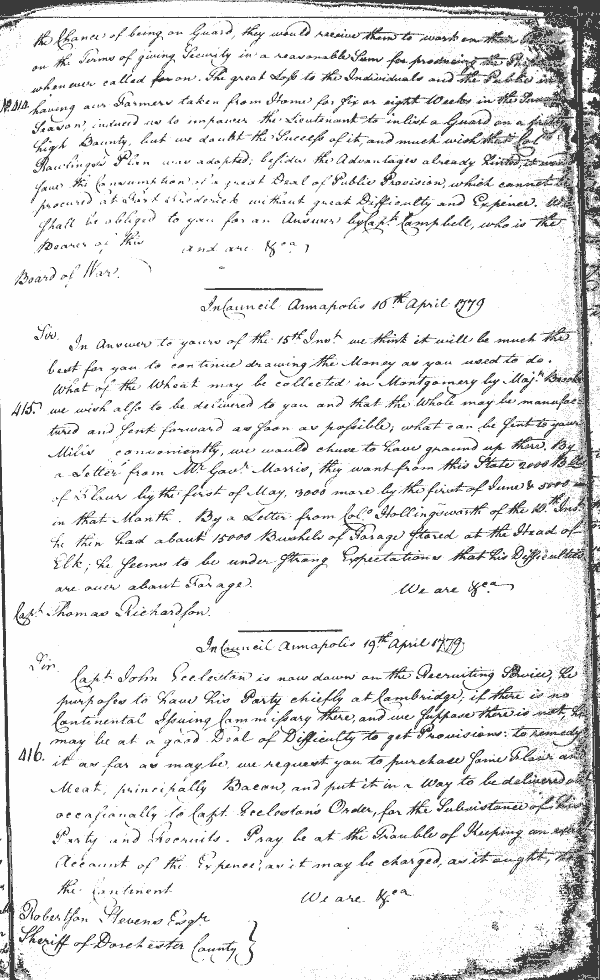 the Chance of being on Guard, they would receive them to work on their
on the Terms of giving Security in a reasonable Sum for producing the
whenever called for on. The great Loss to the Individuals and the Public in
No. 414. having our Farmers taken from Home for six or eight Weeks in the
Season, induced us to impower the Lieutenant to enlist a Guard on a pretty
high Bounty, but we doubt the Success of it, and much wish that Colo
Rawlings's Plan was adopted; besides the Advantages already hinted, it would
save the Consumption of a great Deal of Public Provision, which cannot be
procured at Fort Frederick without great Difficulty and Expence. We
shall be obliged to you for an Answer by Capt. Campbell, who is the
Bearer of this and are &ca
Board of War.
In Council Annapolis 16th April 1779
Sir.
In Answer to yours of the 15th Inst we think it will be much the
best for you to continue drawing the Money as you used to do.
What of the Wheat may be collected in Montgomery by Majr. Brooke
415. we wish also to be delivered to you and that the Whole may be manufac-
tured and sent forward as soon as possible; what can be sent to your
Mills conveniently, we would chuse to have ground up there. By
a Letter from Mr. Govr. Morris, they want from this State 2000 Bbls
of Flour by the first of May, 3000 more by the first of June & 5000
in that Month. By a Letter from Colo. Hollingsworth of the Inst.
he then had about 15000 Bushels of Forage stored at the Head of
Elk; he seems to be under strong Expectations that his Difficulties
are over about Forage.
We are &ca
Capt. Thomas Richardson.
In Council Annapolis 19th April 1779
Sir.
Capt John Eccleston is now down on the Recruiting Service, he
purposes to have his Party chiefly at Cambridge; if there is no
Continental Issuing Commissary there, and we suppose there is not, he
may be at a good Deal of Difficulty to get Provisions: to remedy
416. it as far as may be, we request you to purchase some Flour and
Meat, principally Bacon, and put it in a Way to be delivered
occasionally to Capt. Eccleston's Order, for the Subsistance of his
Party and Recruits. Pray be at the Trouble of Keeping an exact
Account of the Expence, as it may be charged, as it ought, to
the Continent We are &ca
Robertson Stevens Esqr.
Sheriff of Dorchester County